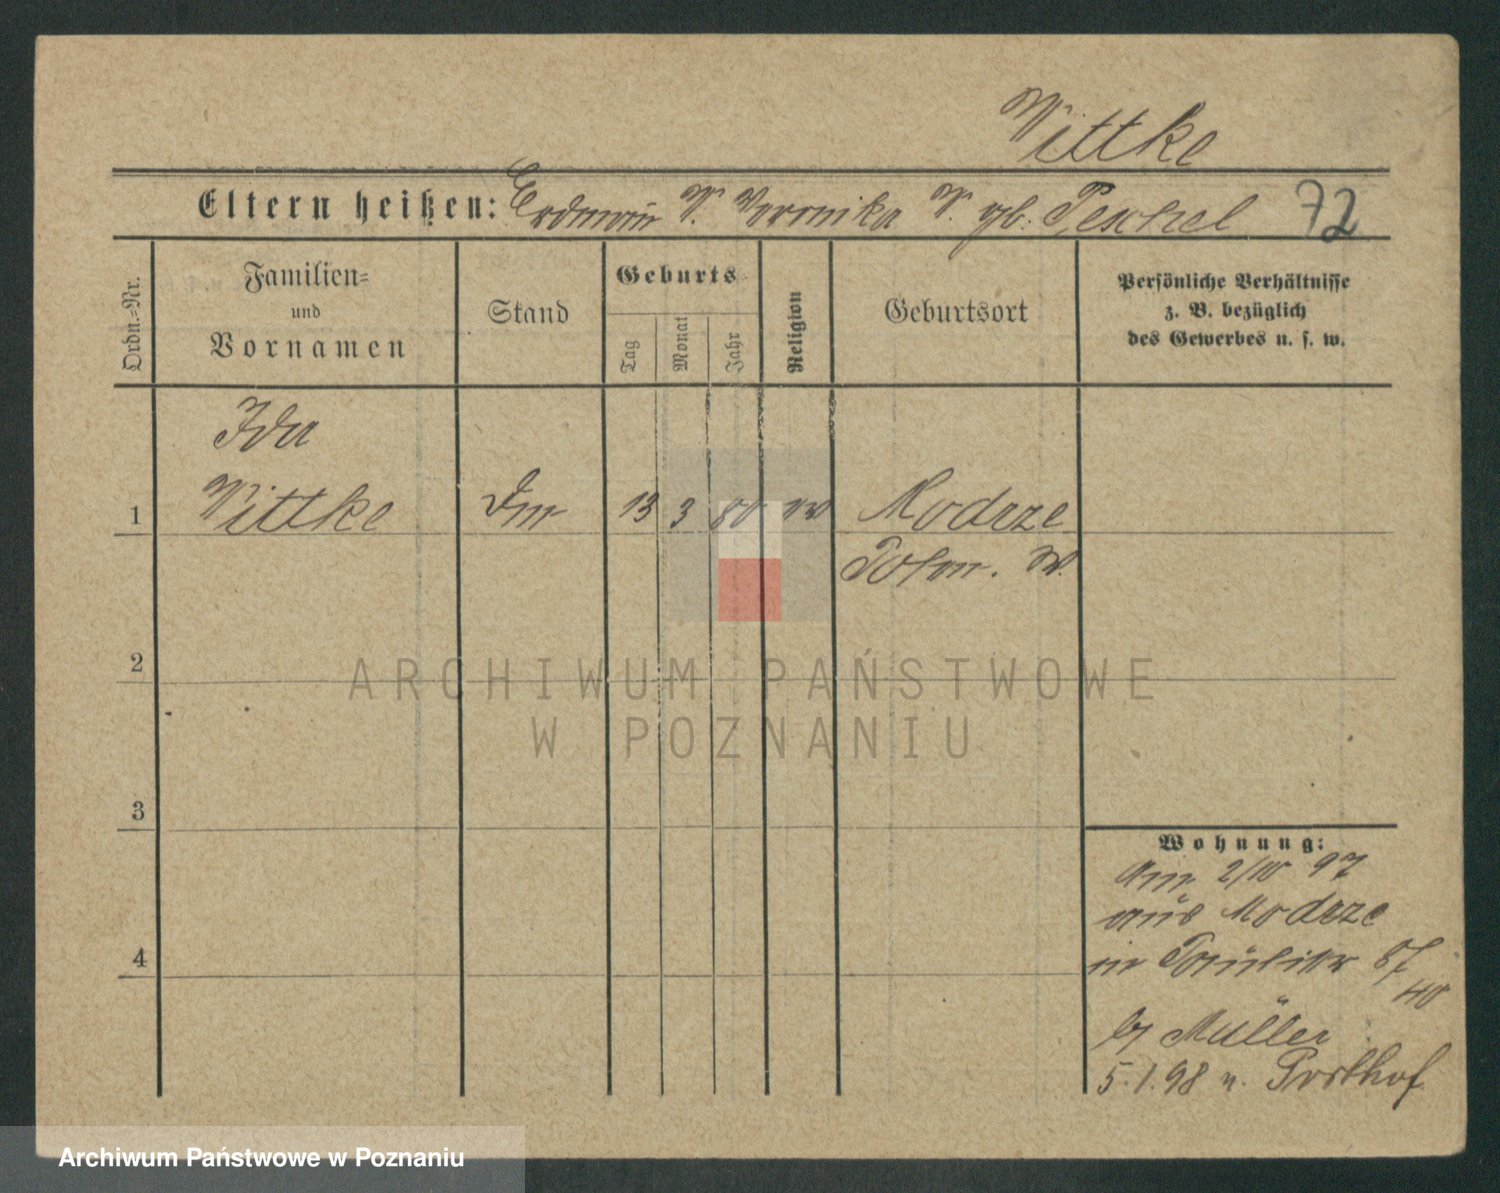 Wittke
Eltern heißen: Erdmann W. Veronika W. gb. Peschel 72
Ordn.-Nr.
Familien-
und
Vornamen
Stand
Geburts
Tag
Monat
Jahr
Religion
Geburtsort
Persönliche Verhältnisse
z. B. bezüglich
des Gewerbes u. s. w.
Ida
1 Wittke 13 3 80 Modrze
Posen. W.
2
ARCHIWUM PAŃSTWOWE
W POZNANIU
3
Wohnung:
Am 2/10 97
aus Modrze
in
4
40
b/ Müller
5.1.98 n. Posthof
Archiwum Państwowe w Poznaniu